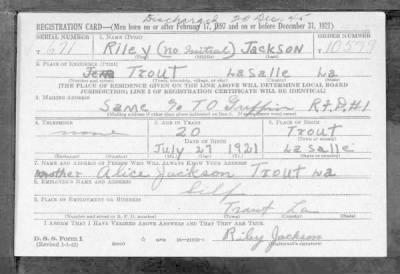 Discharged 20 Dec. 45
REGISTRATION CARD—(Men born on or after February 17, 1897 and on or before December 31, 1921)
SERIAL NUMBER 1. NAME (Print) ORDER NUMBER
T 671 Riley (no initial) Jackson 10579
(First) (Middle) (Last)
2. PLACE OF RESIDENCE (Print)
Trout LaSalle La
(Number and street) (Town, township, village, or city) (County) (State)
[THE PLACE OF RESIDENCE GIVEN ON THE LINE ABOVE WILL DETERMINE LOCAL BOARD
JURISDICTION; LINE 2 OF REGISTRATION CERTIFICATE WILL BE IDENTICAL]
3. MAILING ADDRESS
Same % T.O Griffin Rt. #1
[Mailing address if other than place indicated on line 2. If same insert word same]
4. TELEPHONE 5. AGE IN YEARS 6. PLACE OF BIRTH
none 20 Trout
DATE OF BIRTH (Town or county)
July 27 1921 LaSalle
(Exchange) (Number) (Mo.) (Day) (Yr.) (State or country)
7. NAME AND ADDRESS OF PERSON WHO WILL ALWAYS KNOW YOUR ADDRESS
mother Alice Jackson Trout La
8. EMPLOYER'S NAME AND ADDRESS
Self
9. PLACE OF EMPLOYMENT OR BUSINESS
Trout La
(Number and street or R. F. D. number) (Town) (County) (State)
I AFFIRM THAT I HAVE VERIFIED ABOVE ANSWERS AND THAT THEY ARE TRUE.
D. S. S. Form 1
(Revised 1-1-42) (over) Riley Jackson
(Registrant's signature)